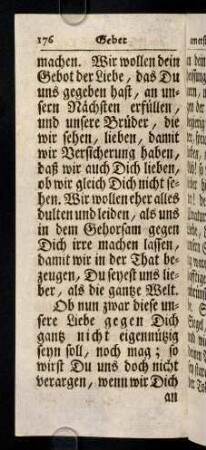 176 Gebet
machen. Wir wollen dein
Gebot der Liebe, das Du
uns gegeben hast, an un-
sern Nächsten erfüllen,
und unsere Brüder, die
wir sehen, lieben, damit
wir Versicherung haben,
daß wir auch Dich lieben,
ob wir gleich Dich nicht se-
hen. Wir wollen eher alles
dulten und leiden, als uns
in dem Gehorsam gegen
Dich irre machen lassen,
damit wir in der That be-
zeugen, Du seyest uns lie-
ber, als die gantze Welt.
Ob nun zwar diese un-
sere Liebe gegen Dich
gantz nicht eigennützig
seyn soll, noch mag; so
wirst Du uns doch nicht
verargen, wenn wir Dich
an